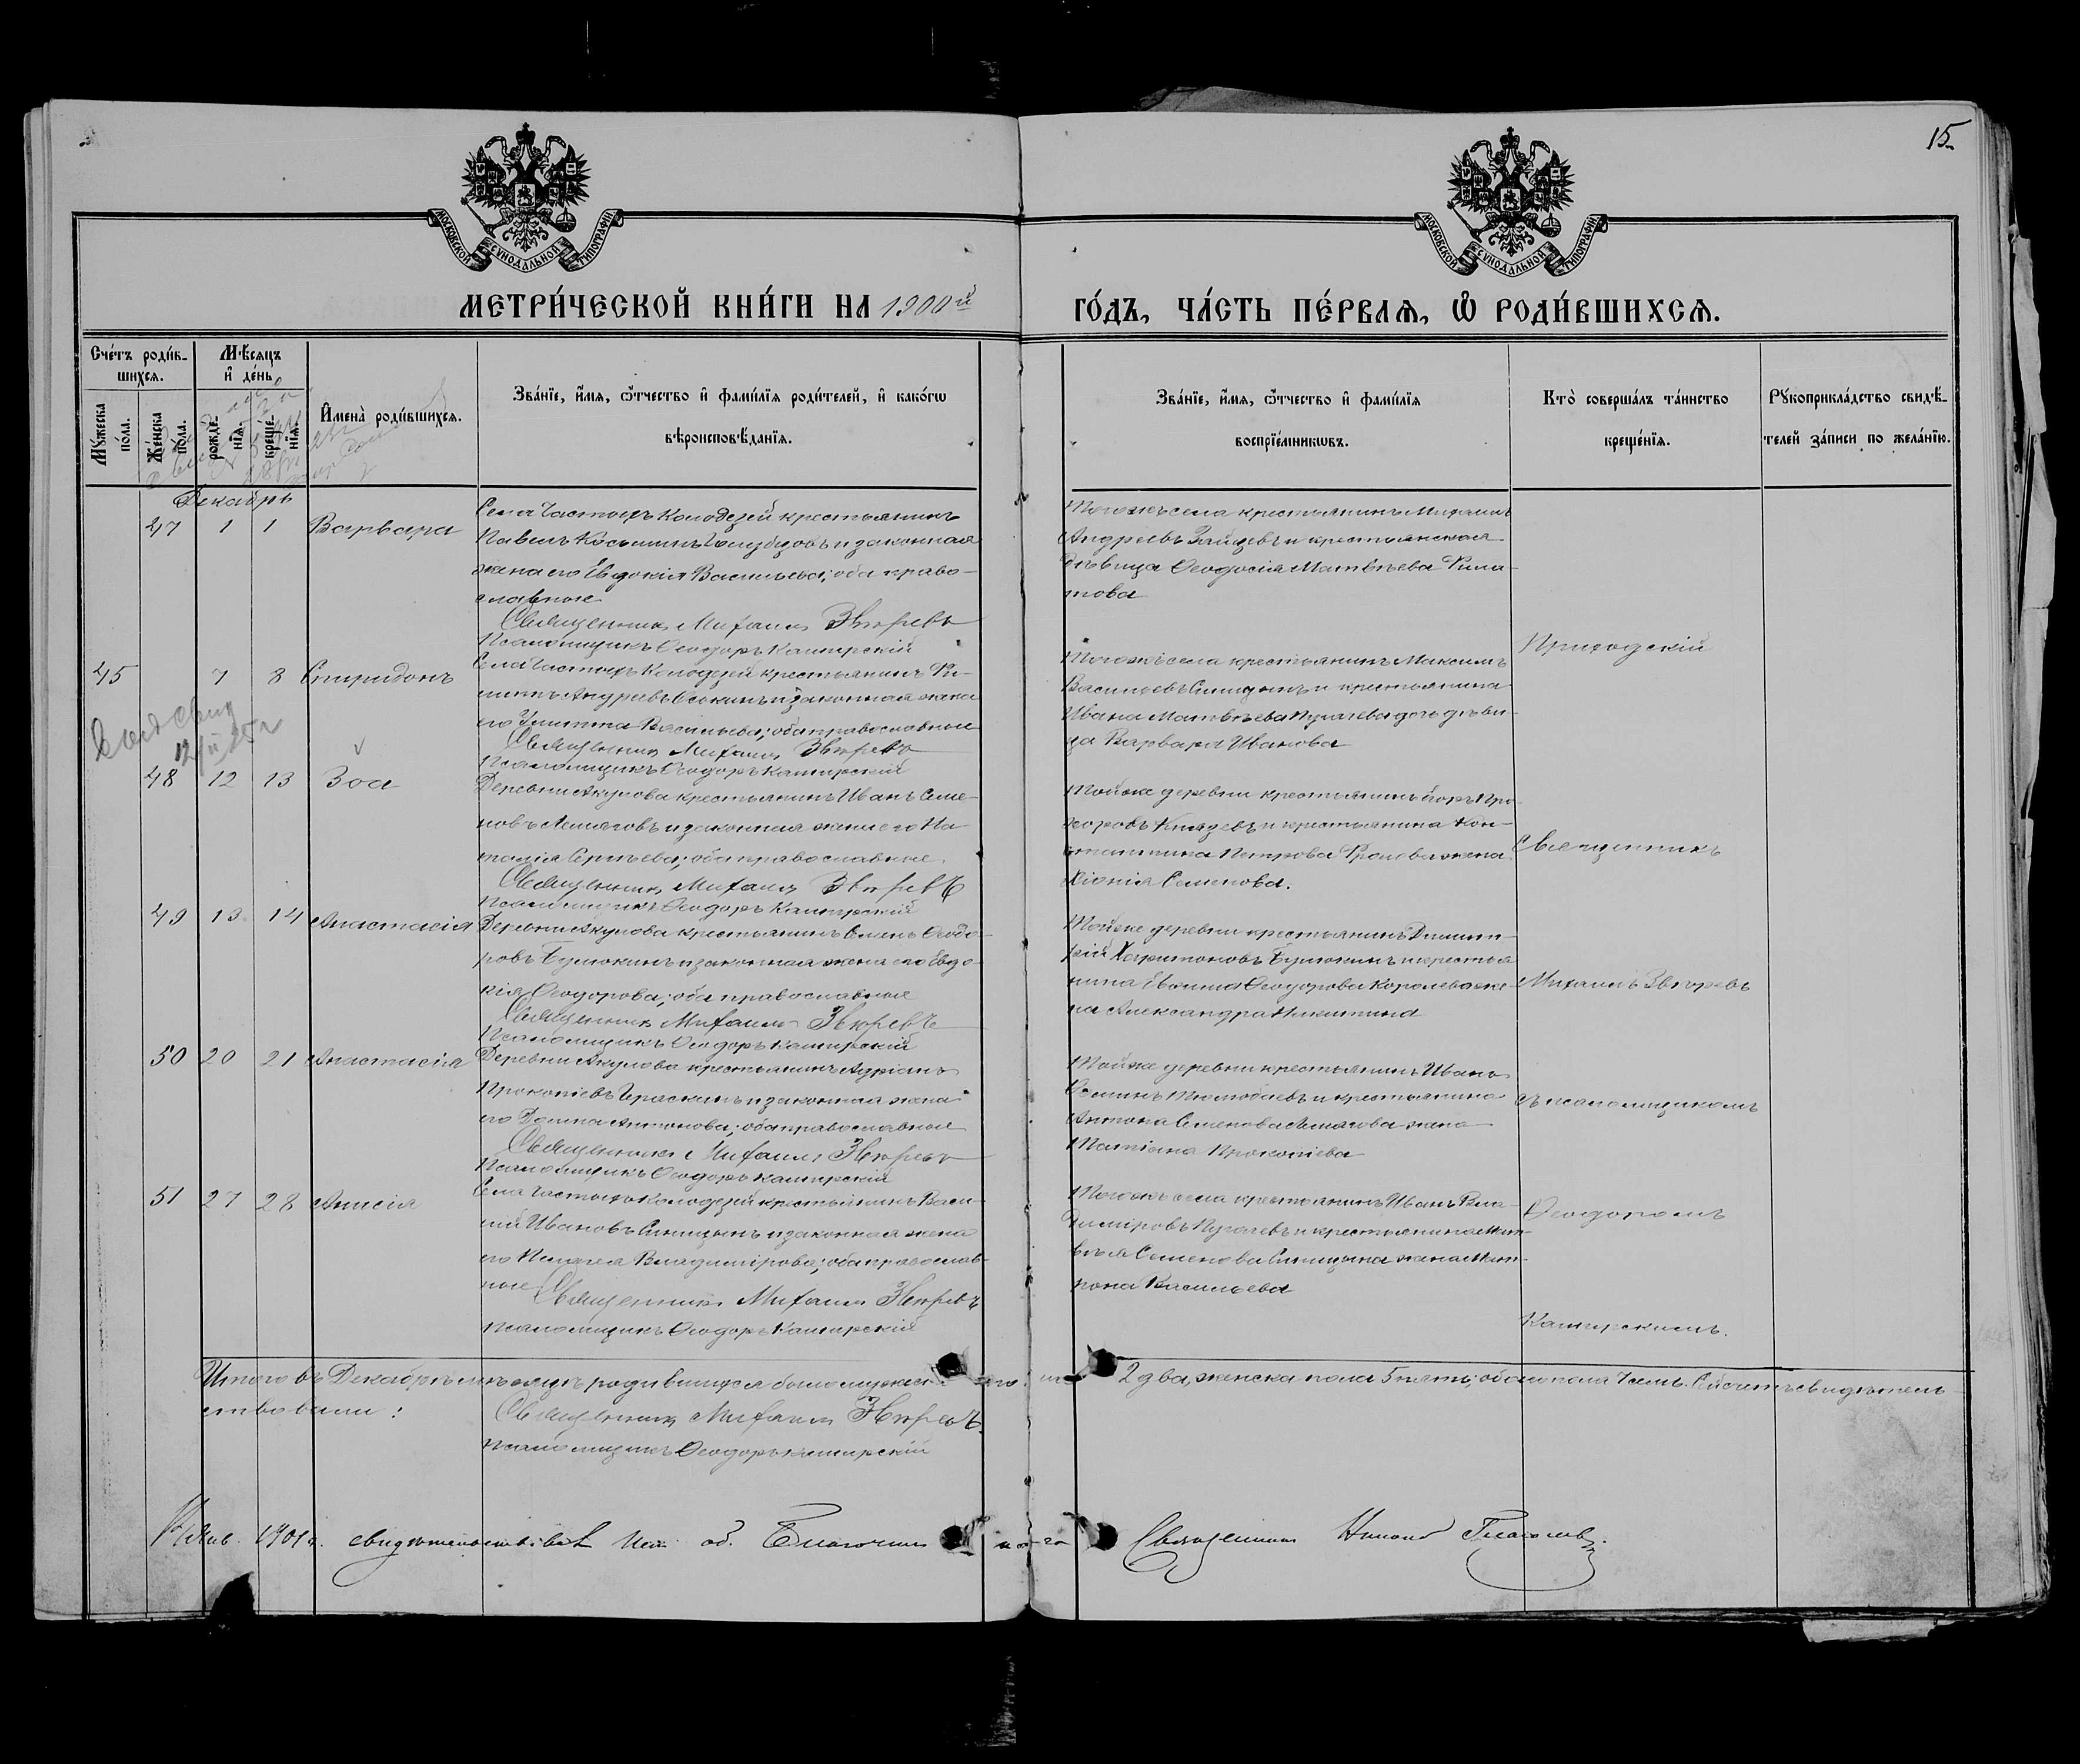 15.
МОСКОВСКОЙ СУНОДАЛЬНОЙ ТИПОГРАФІИ
МОСКОВСКОЙ СУНОДАЛЬНОЙ ТИПОГРАФІИ
МЕТРИ́ЧЕСКОЙ КНИ́ГИ НА 1900й
ГО́ДЪ, ЧА́СТЬ ПЕ́РВАѦ, Ѡ РОДИ́ВШИХСѦ.
Сче́тъ роди́в-
шихсѧ.
Мꙋ́жеска по́ла.
Же́нска по́ла.
Мѣ́сѧцъ
и҆ де́нь
рожде́-
нїѧ.
креще́-
нїѧ.
И҆мена̀ роди́вшихсѧ.
Зва́нїе, и҆́мѧ, ѻ҆́тчество и҆ фами́лїѧ роди́телей, и҆ како́гѡ
вѣроисповѣ́данїѧ.
Зва́нїе, и҆́мѧ, ѻ҆́тчество и҆ фами́лїѧ
воспрїе́мникѡвъ.
Кто̀ соверша́лъ та́инство
креще́нїѧ.
Рꙋкоприкла́дство свидѣ́-
телей за́писи по жела́нїю.
Декабрь
47 1 1 Варвара
Села Частыхъ Колодезей крестьянинъ
Павелъ Косьминъ Голубцовъ и законная
жена его Евдокія Васильева; оба право-
славные
Священникъ Михаилъ Звѣревъ
Псаломщикъ Ѳеодоръ Каширскій
Тогожъ села крестьянинъ Михаилъ
Андреевъ Зайцевъ и крестьянская
дѣвица Ѳеодосія Матвѣева Фила-
това
Приходскій
45 7 8 Спиридонъ
Села Частыхъ Колодезей крестьянинъ Фи-
липпъ Андреевъ Осокинъ и законная жена
его Улитта Васильева; оба православные
Священникъ Михаилъ Звѣревъ
Псаломщикъ Ѳеодоръ Каширскій
Тогожъ села крестьянинъ Максимъ
Васильевъ Синицынъ и крестьянина
Ивана Матвѣева Пугачева дочь дѣви-
ца Варвара Иванова
48 12 13 Зоа
Деревни Акулова крестьянинъ Иванъ Семе-
новъ Ломаговъ и законная жена его На-
талія Сергѣева; оба православные.
Священникъ Михаилъ Звѣревъ
Псаломщикъ Ѳеодоръ Каширскій
Тойже деревни крестьянинъ Егоръ Про-
хоровъ Князевъ и крестьянина Кон-
стантина Петрова Фролова жена
Хіонія Семенова.
Священникъ
49 13 14 Анастасія
Деревни Акулова крестьянинъ Семенъ Ѳеодо-
ровъ Бумокинъ и законная жена его Евдо-
кія Ѳеодорова; оба православные
Священникъ Михаилъ Звѣревъ
Псаломщикъ Ѳеодоръ Каширскій
Тойже деревни крестьянинъ Димит-
рій Харитоновъ Бумокинъ и крестья-
нина Ѳеодорова Королева же-
на Александра Никитина
Михаилъ Звѣревъ
50 20 21 Анастасія
Деревни Акулова крестьянинъ Адріанъ
Прокопіевъ Гераскинъ и законная жена
его Домна Антонова; оба православные
Священникъ Михаилъ Звѣревъ
Псаломщикъ Ѳеодоръ Каширскій
Тойже деревни крестьянинъ Иванъ
Ѳоминъ и крестьянина
Антона Семенова Ломагова жена
Татіана Прокопіева
съ псаломщикомъ
51 27 28 Анисія
Села Частыхъ Колодезей крестьянинъ Васи-
лій Ивановъ Синицынъ и законная жена
его Пелагея Владимірова; оба православ-
ные Священникъ Михаилъ Звѣревъ
Псаломщикъ Ѳеодоръ Каширскій
Тогожъ села крестьянинъ Иванъ Вла-
диміровъ Пугачевъ и крестьянина Мат-
вѣя Семенова Синицына жена Мат-
рона Васильева
Ѳеодоромъ
Каширскимъ.
Итого въ Декабрѣ мѣсяцѣ родившихся было мужеска 2 два, женска пола 5 пять; обоего пола 7 семь. Сей счетъ свидѣтель-
ствовали:
Священникъ Михаилъ Звѣревъ.
Псаломщикъ Ѳеодоръ Каширскій
1901 г. свидѣтельствовалъ Благочин
Священникъ Глаголевъ.